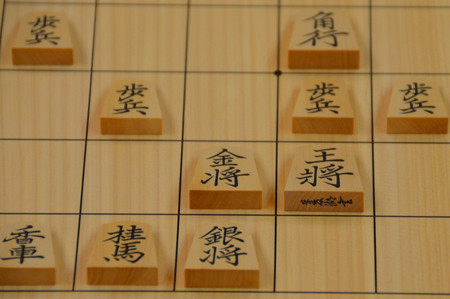 歩兵
角行
歩兵
歩兵
歩兵
金将
王将
香車
桂馬
銀将